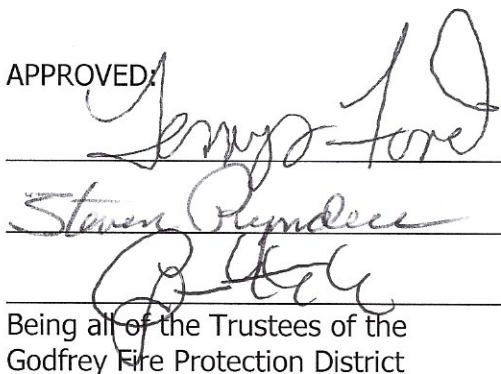 APPROVED:
Ford
Steven
Being all of the Trustees of the
Godfrey Fire Protection District